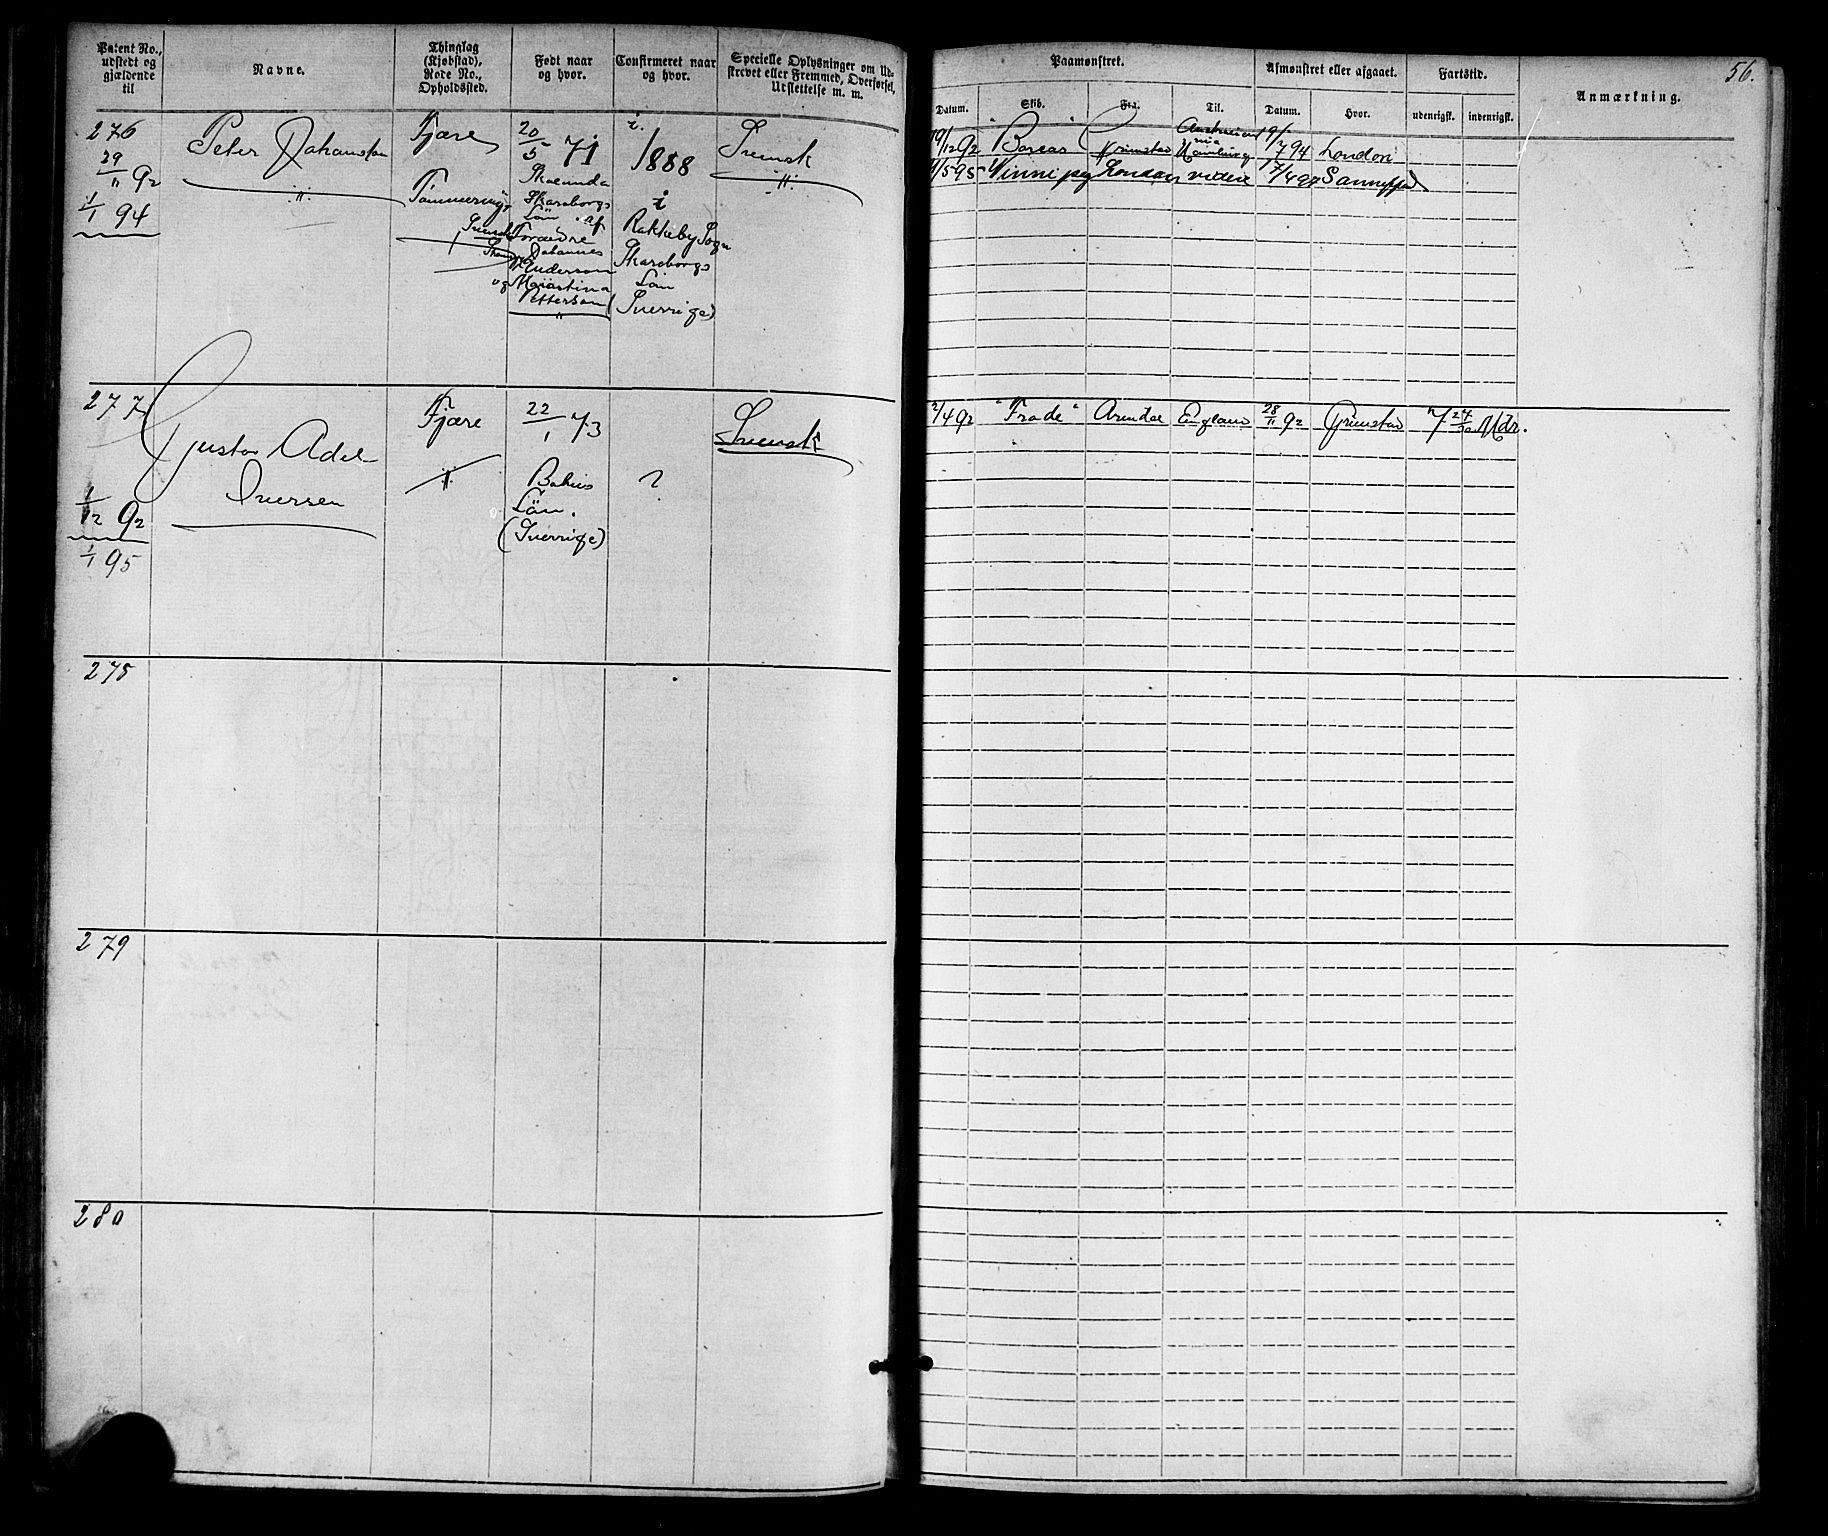 Patent No., udstedt og gjældende til
Navne.
Thinglag (Kjøbstad), Rode No., Opholdssted.
Født naar og hvor.
Confirmeret naar og hvor.
Specielle Oplysninger om Udskrevet eller Fremmed, Overførsel, Udslettelse m. m.
Paamønstret.
Afmønstret eller afgaaet.
Fartstid.
Anmærkning.
56.
Datum.
Skib.
Fra.
Til.
Datum.
Hvor.
udenrigsk.
indenrigsk.
276
29/11 92
1/1 94
Peter Johanson
Fjære
20/5 71
Skaraborgs
Län. af
Forældre
Johannes
Anderson
og
Petterson
i.
1888
i
Rakkeby Sogn
Skaraborgs
Län
(Sverrige)
Svensk
19/12 92 Boreas Grimstad
Hamburg
9/7 94 London
Winnipeg London videre 7/4 97 Sannefjord
277
1/12 92
1/1 95
Gustav Adel
Iversen
Fjære
22/1 73
Bahus
Län.
(Sverrige)
?
Svensk
2/4 92 "Frode" Arendal England 28/11 92 Grimstad 7 24/30 Mdr.
278
279
280